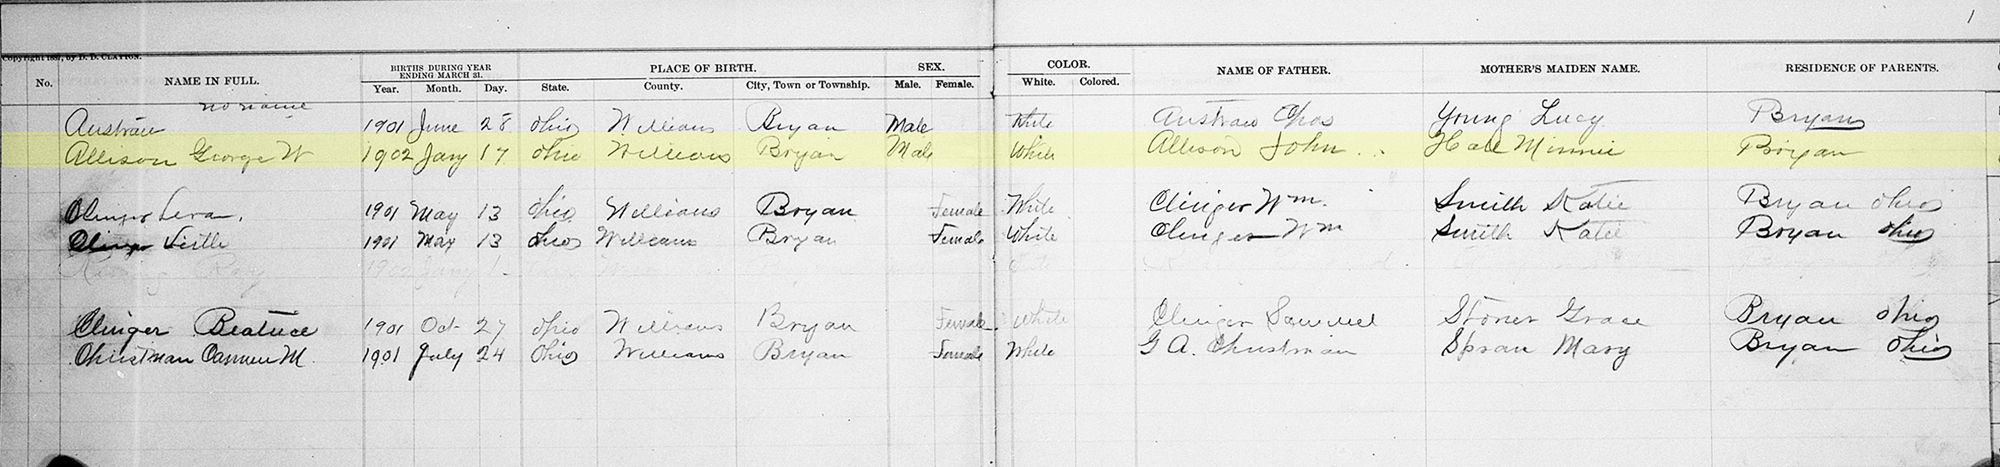 1
Copyright 188, by D. D. CLAYTON.
No. NAME IN FULL. BIRTHS DURING YEAR ENDING MARCH 31. Year. Month. Day. PLACE OF BIRTH. State. County. City, Town or Township. SEX. Male. Female. COLOR. White. Colored. NAME OF FATHER. MOTHER'S MAIDEN NAME. RESIDENCE OF PARENTS.
no name
Austraw 1901 June 28 Ohio Williams Bryan Male White Austraw Chas Young Lucy Bryan
Allison George W 1902 Jany 17 Ohio Williams Bryan Male White Allison John Hall Minnie Bryan
Clinger 1901 May 13 Ohio Williams Bryan Female White Clinger Wm. Smith Katie Bryan Ohio
Clinger 1901 May 13 Ohio Williams Bryan Female White Clinger Wm Smith Katie Bryan Ohio
Ray 1902 Jany 1
Clinger Beatrice 1901 Oct 27 Ohio Williams Bryan Female White Clinger Samuel Stoner Grace Bryan Ohio
Christman Carmen M. 1901 July 24 Ohio Williams Bryan Female White G A. Christman Mary Bryan Ohio